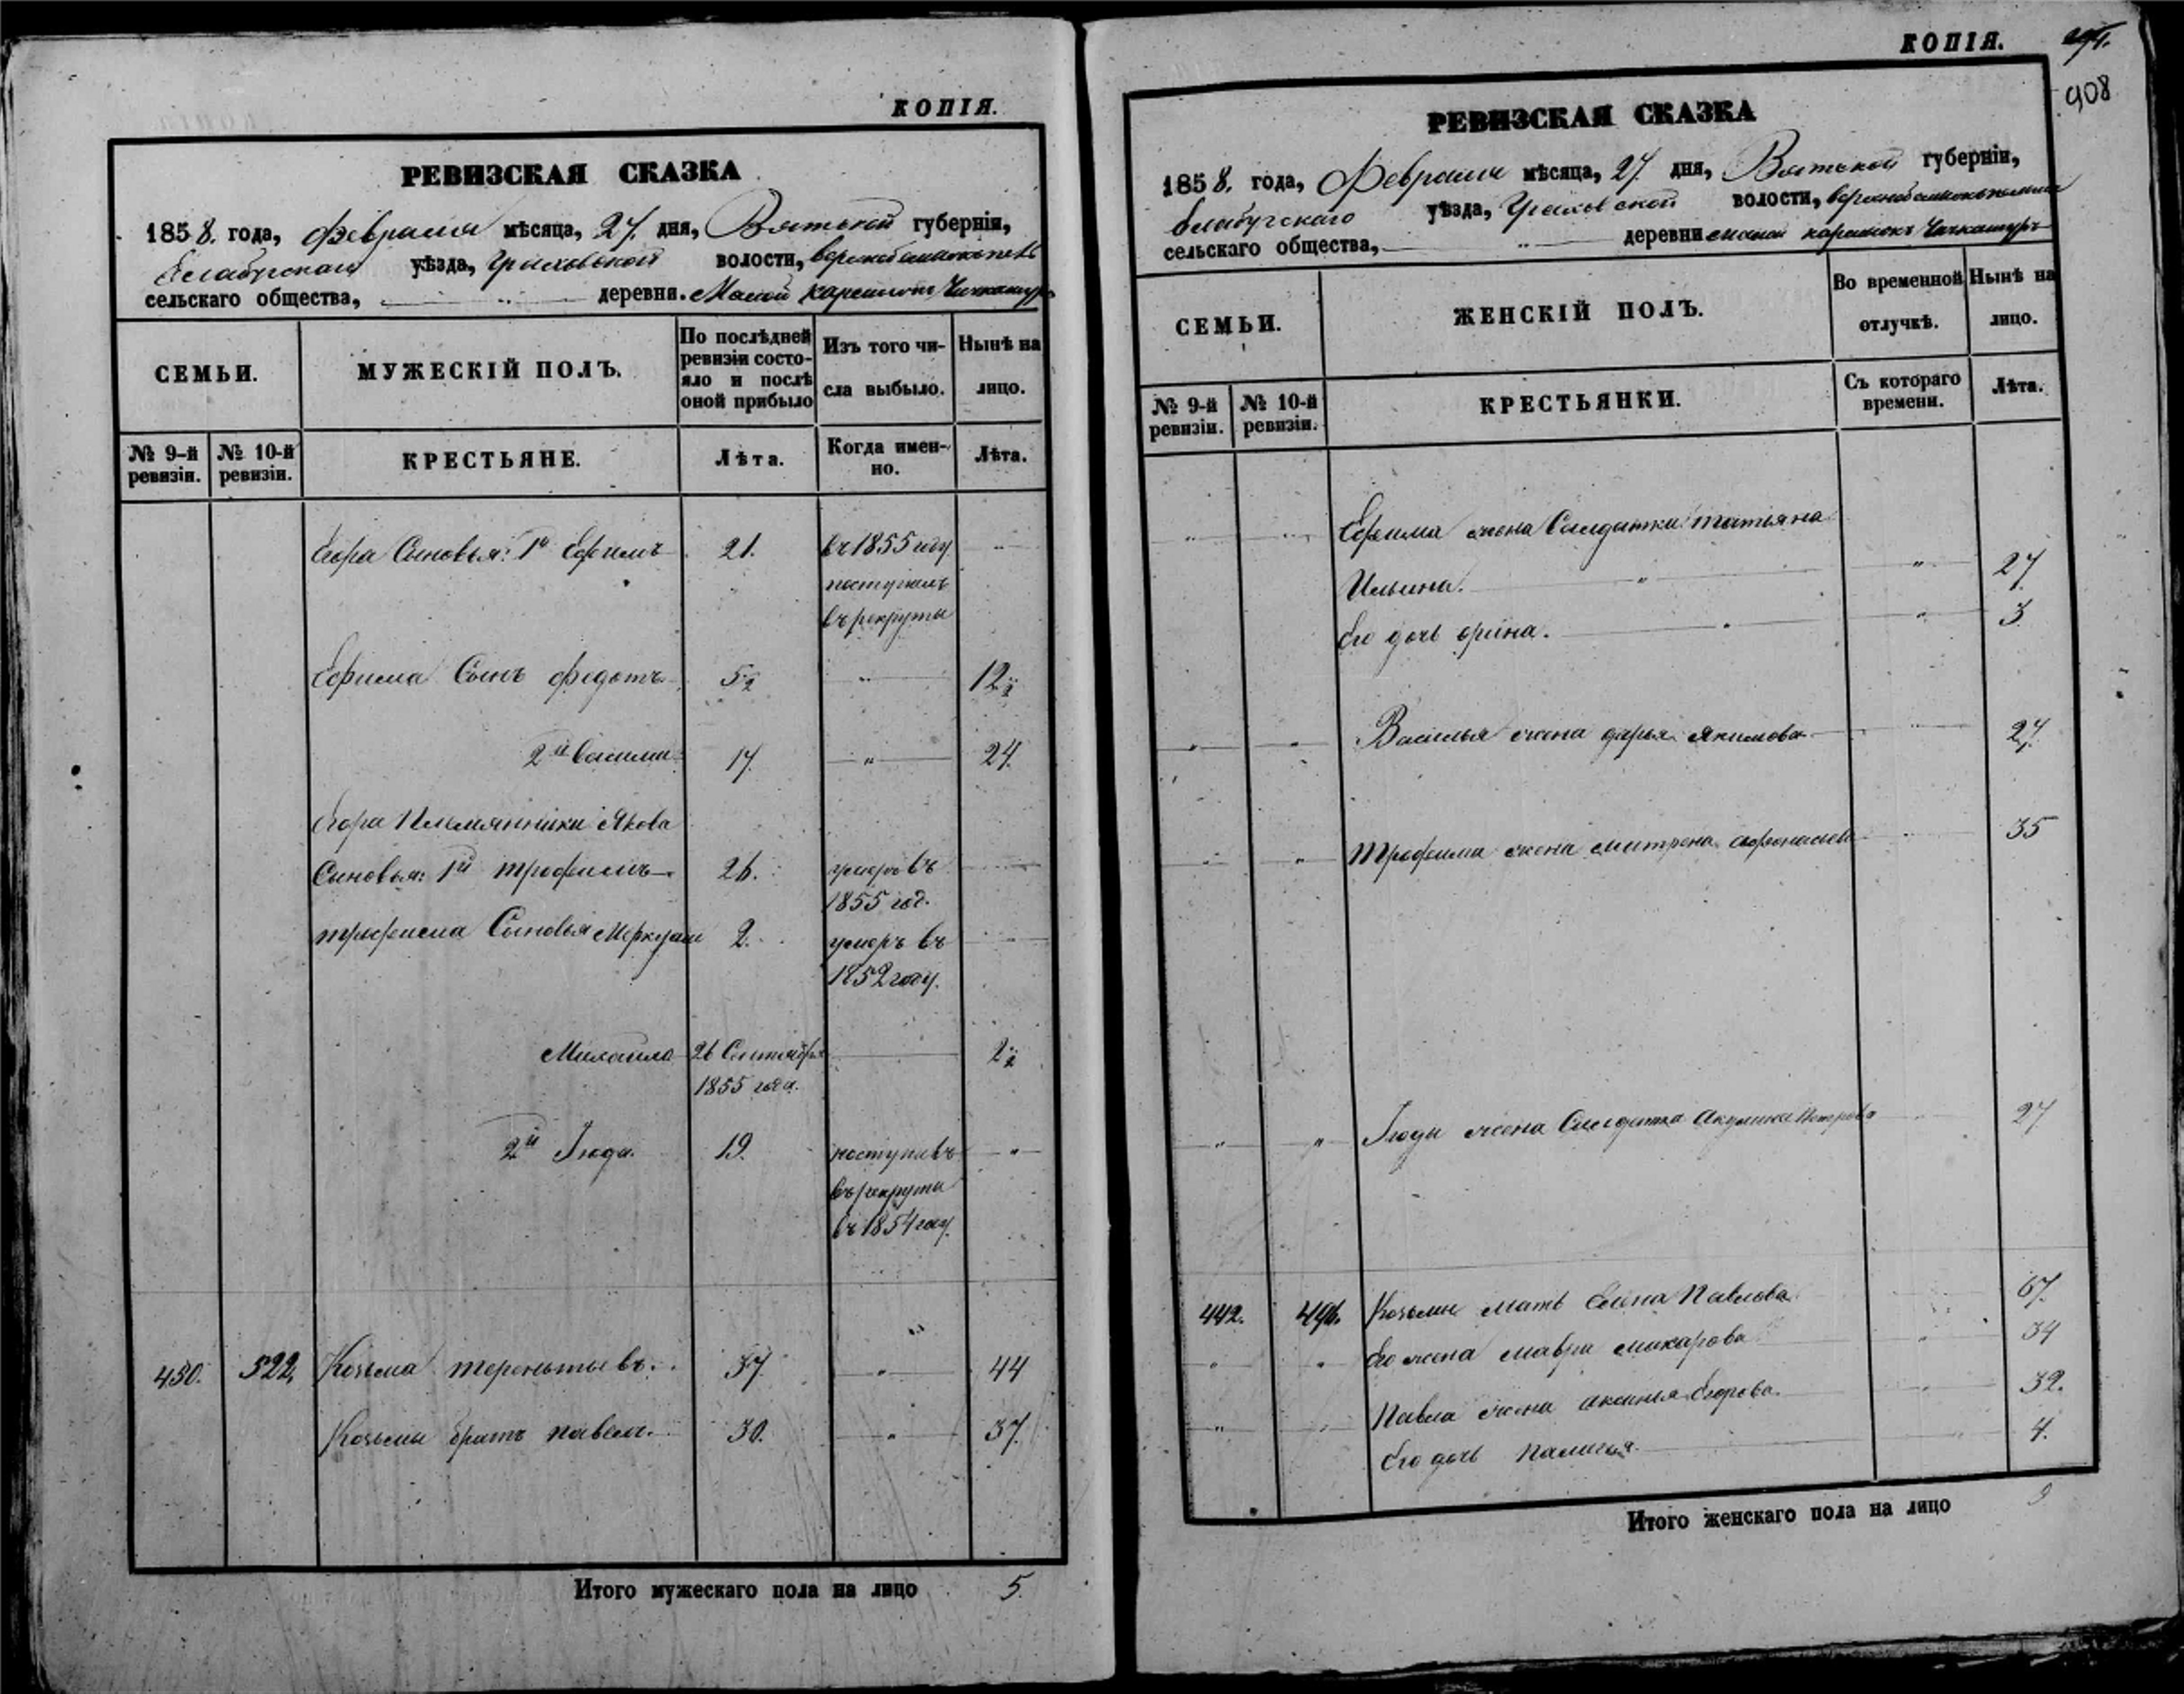 КОПІЯ.
РЕВИЗСКАЯ СКАЗКА
1858. года, февраля мѣсяца, 27. дня, Вятской губерніи,
Елабугскаго уѣзда, Граховской волости,
сельскаго общества, деревни. Малой
СЕМЬИ.
МУЖЕСКІЙ ПОЛЪ.
По послѣдней ревизіи состояло и послѣ оной прибыло
Изъ того числа выбыло.
Нынѣ на лицо.
№ 9-й ревизіи.
№ 10-й ревизіи.
КРЕСТЬЯНЕ.
Лѣта.
Когда именно.
Лѣта.
Егора Сыновья: 1й Ефимъ 21. въ 1855 году
поступилъ
въ рекруты
Ефима Сынъ федотъ 5½ 12½
2й василий 17. 24.
Егора Племянники Якова
Сыновья: 1й трофимъ 26. умеръ въ
1855 год.
трофима Сыновья 2. умеръ въ
1852 году.
Михаила 26 Сентября 2½
1855 года.
2й Июда. 19. поступивъ
въ рекруты
въ 1854 году.
430. 522. Козьма терентьевъ. 37. 44
Козьмы братъ павелъ. 30. 37.
Итого мужескаго пола на лицо 5.
КОПІЯ.
908
РЕВИЗСКАЯ СКАЗКА
1858. года, Февраля мѣсяца, 27. дня, Вятской губерніи,
Елабугскаго уѣзда, Граховской волости,
сельскаго общества, деревни малой
СЕМЬИ.
ЖЕНСКІЙ ПОЛЪ.
Во временной отлучкѣ.
Нынѣ на лицо.
№ 9-й ревизіи.
№ 10-й ревизіи.
КРЕСТЬЯНКИ.
Съ котораго времени.
Лѣта.
Ефима жена Салдатка татьяна
Ильина. 27.
Его дочь орина. 3
Василья жена дарья Якимова 27.
трофима жена матрена 35
Июды жена Салдатка акулина Петрова 27
442. 496. Козьмы мать Елена Павлова 67.
Его жена мавра макарова 34
Павла жена аксинья Егорова. 32.
Его дочь 4.
Итого женскаго пола на лицо 9